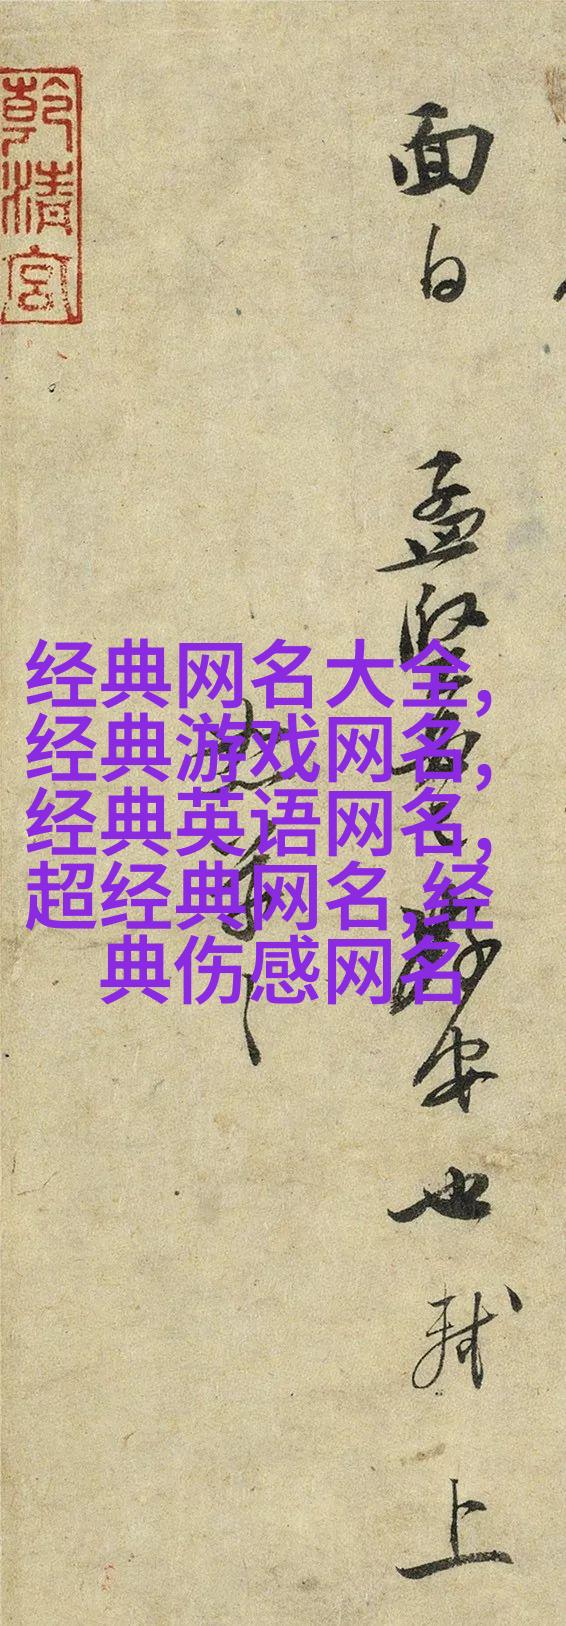 面白 孟堅 安也 軾 上
乾清宮
经典网名大全,
经典游戏网名,
经典英语网名,
超经典网名,经
典伤感网名